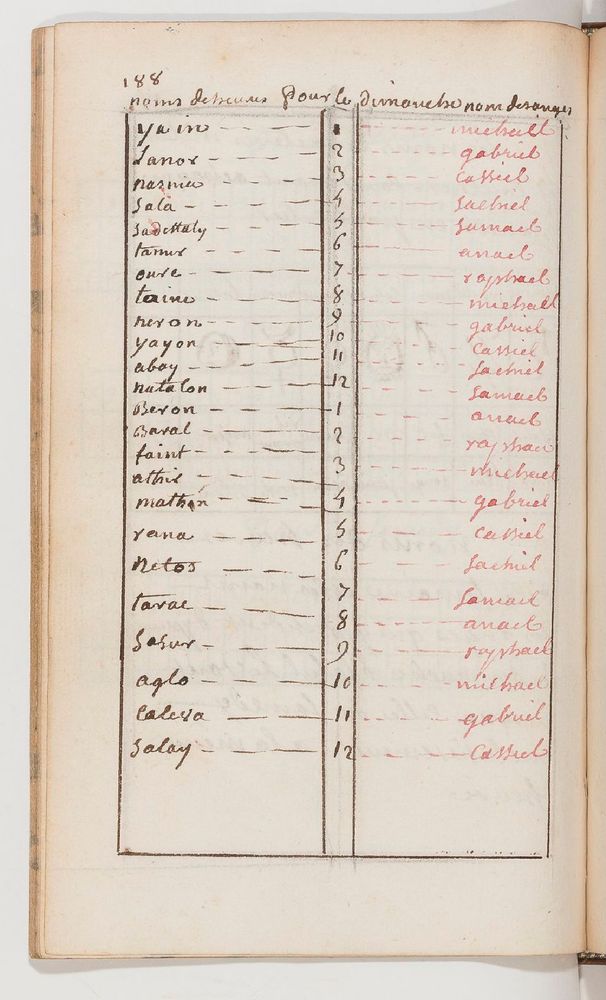 188
noms deheures Pour le dimanche nom desanges
yain 1 michall
Janor 2 gabriel
nasnia 3 Cassiel
Sala 4 Sachiel
Sadestaly 5 Samael
tamur 6 anael
oure 7 raphael
taine 8 michall
neron 9 gabriel
yayon 10 Cassiel
abay 11 Sachiel
natalon 12 Samael
Beron 1 anael
Baral 2 raphael
faint 3 michael
athir 4 gabriel
mathon 5 Cassiel
rana 6 Sachiel
Netos 7 Samael
tarae 8 anael
Sasur 9 raphael
aglo 10 michael
Calera 11 gabriel
Salay 12 Cassiel